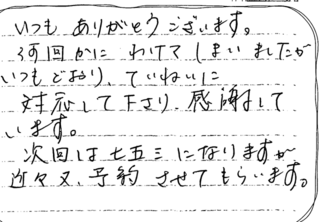 いつも ありがとうございます。
3才回かに わけてしまいましたが
いつもどおり、ていねいに
対応して下さり、感謝して
います。
次回は七五三になりますが
近々又、予約 させてもらいます。